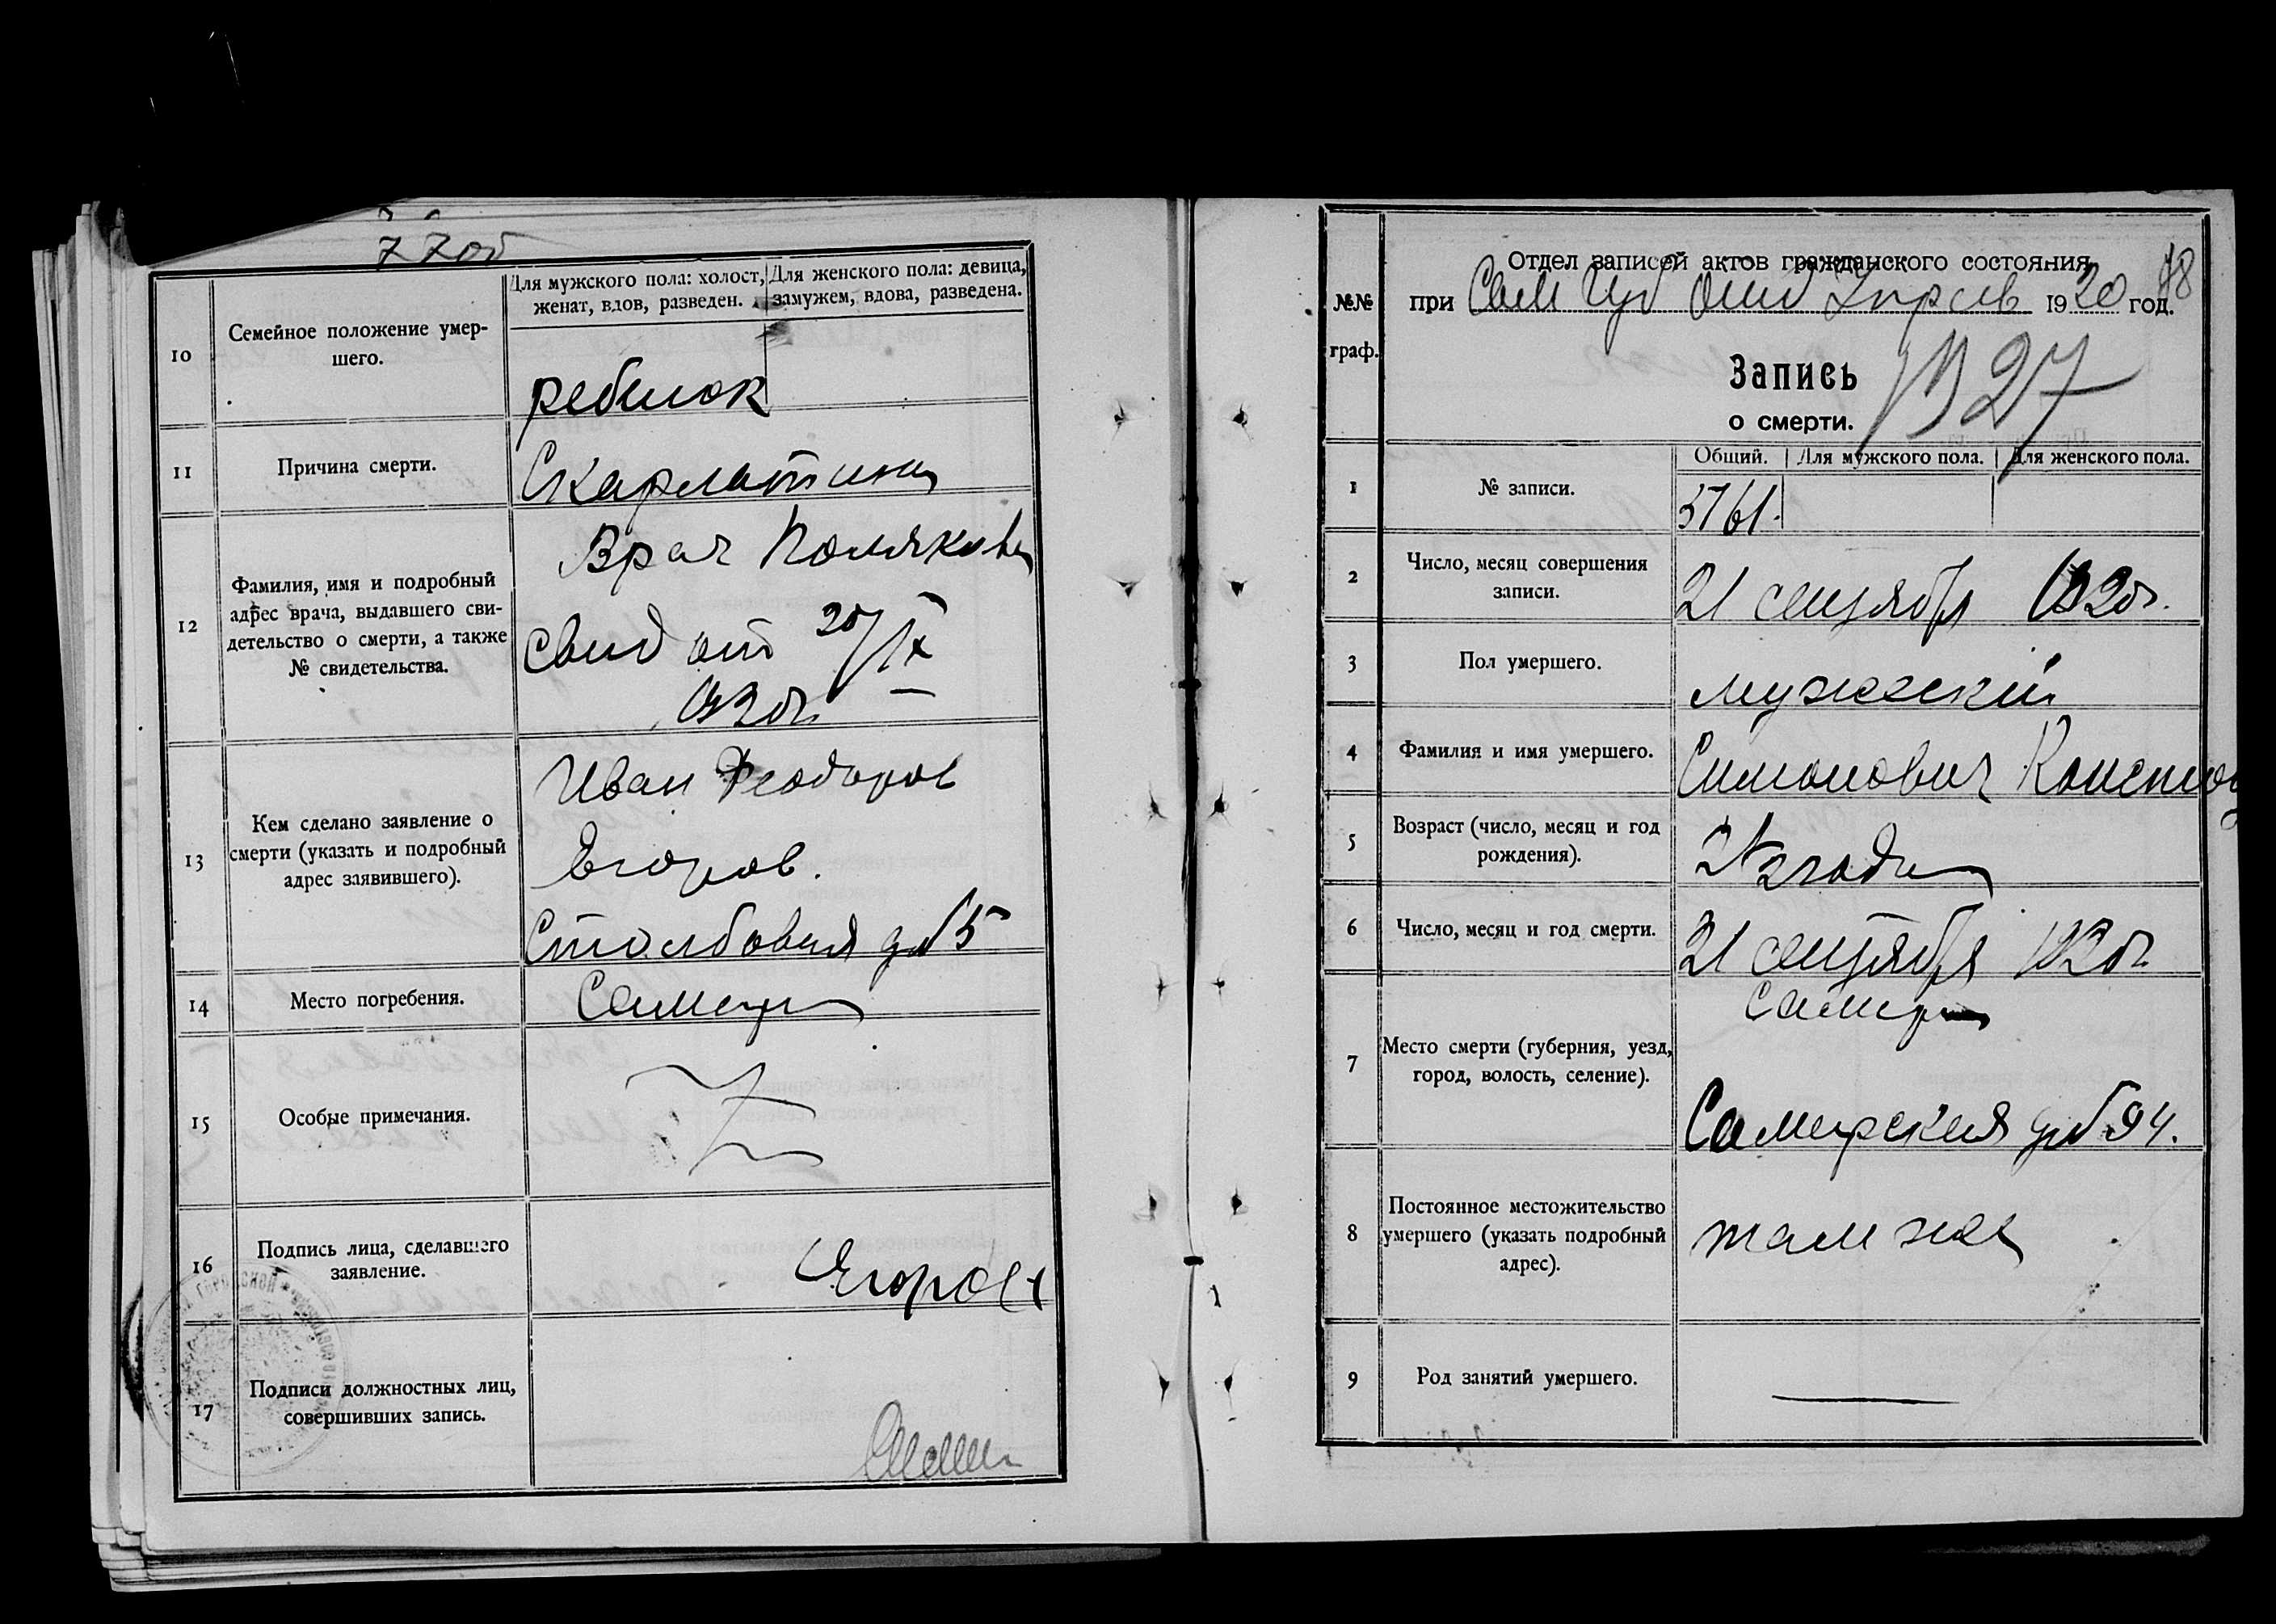 77об
10
Семейное положение умер-
шего.
Для мужского пола: холост,
женат, вдов, разведен.
Для женского пола: девица,
замужем, вдова, разведена.
ребенок
11
Причина смерти.
Скарлатина
12
Фамилия, имя и подробный
адрес врача, выдавшего сви-
детельство о смерти, а также
№ свидетельства.
Врач Полякова
Свид от 20/IX
1920г.
13
Кем сделано заявление о
смерти (указать и подробный
адрес заявившего).
Иван Феодоров
Егоров.
Столбовая
14
Место погребения.
Самара
15
Особые примечания.
16
Подпись лица, сделавшего
заявление.
Егоров
17
Подписи должностных лиц,
совершивших запись.
78
№№
граф.
Отдел записей актов гражданского состояния
при Сам Губ Отд Управ 1920 год.
Запись
о смерти.
1
№ записи.
Общий. Для мужского пола. Для женского пола.
3761.
2
Число, месяц совершения
записи.
21 сентября 1920г.
3
Пол умершего.
мужской
4
Фамилия и имя умершего.
Симонович
5
Возраст (число, месяц и год
рождения).
года
6
Число, месяц и год смерти.
21 сентября 1920г.
7
Место смерти (губерния, уезд,
город, волость, селение).
Самара
Самарская 94.
8
Постоянное местожительство
умершего (указать подробный
адрес).
там же
9
Род занятий умершего.